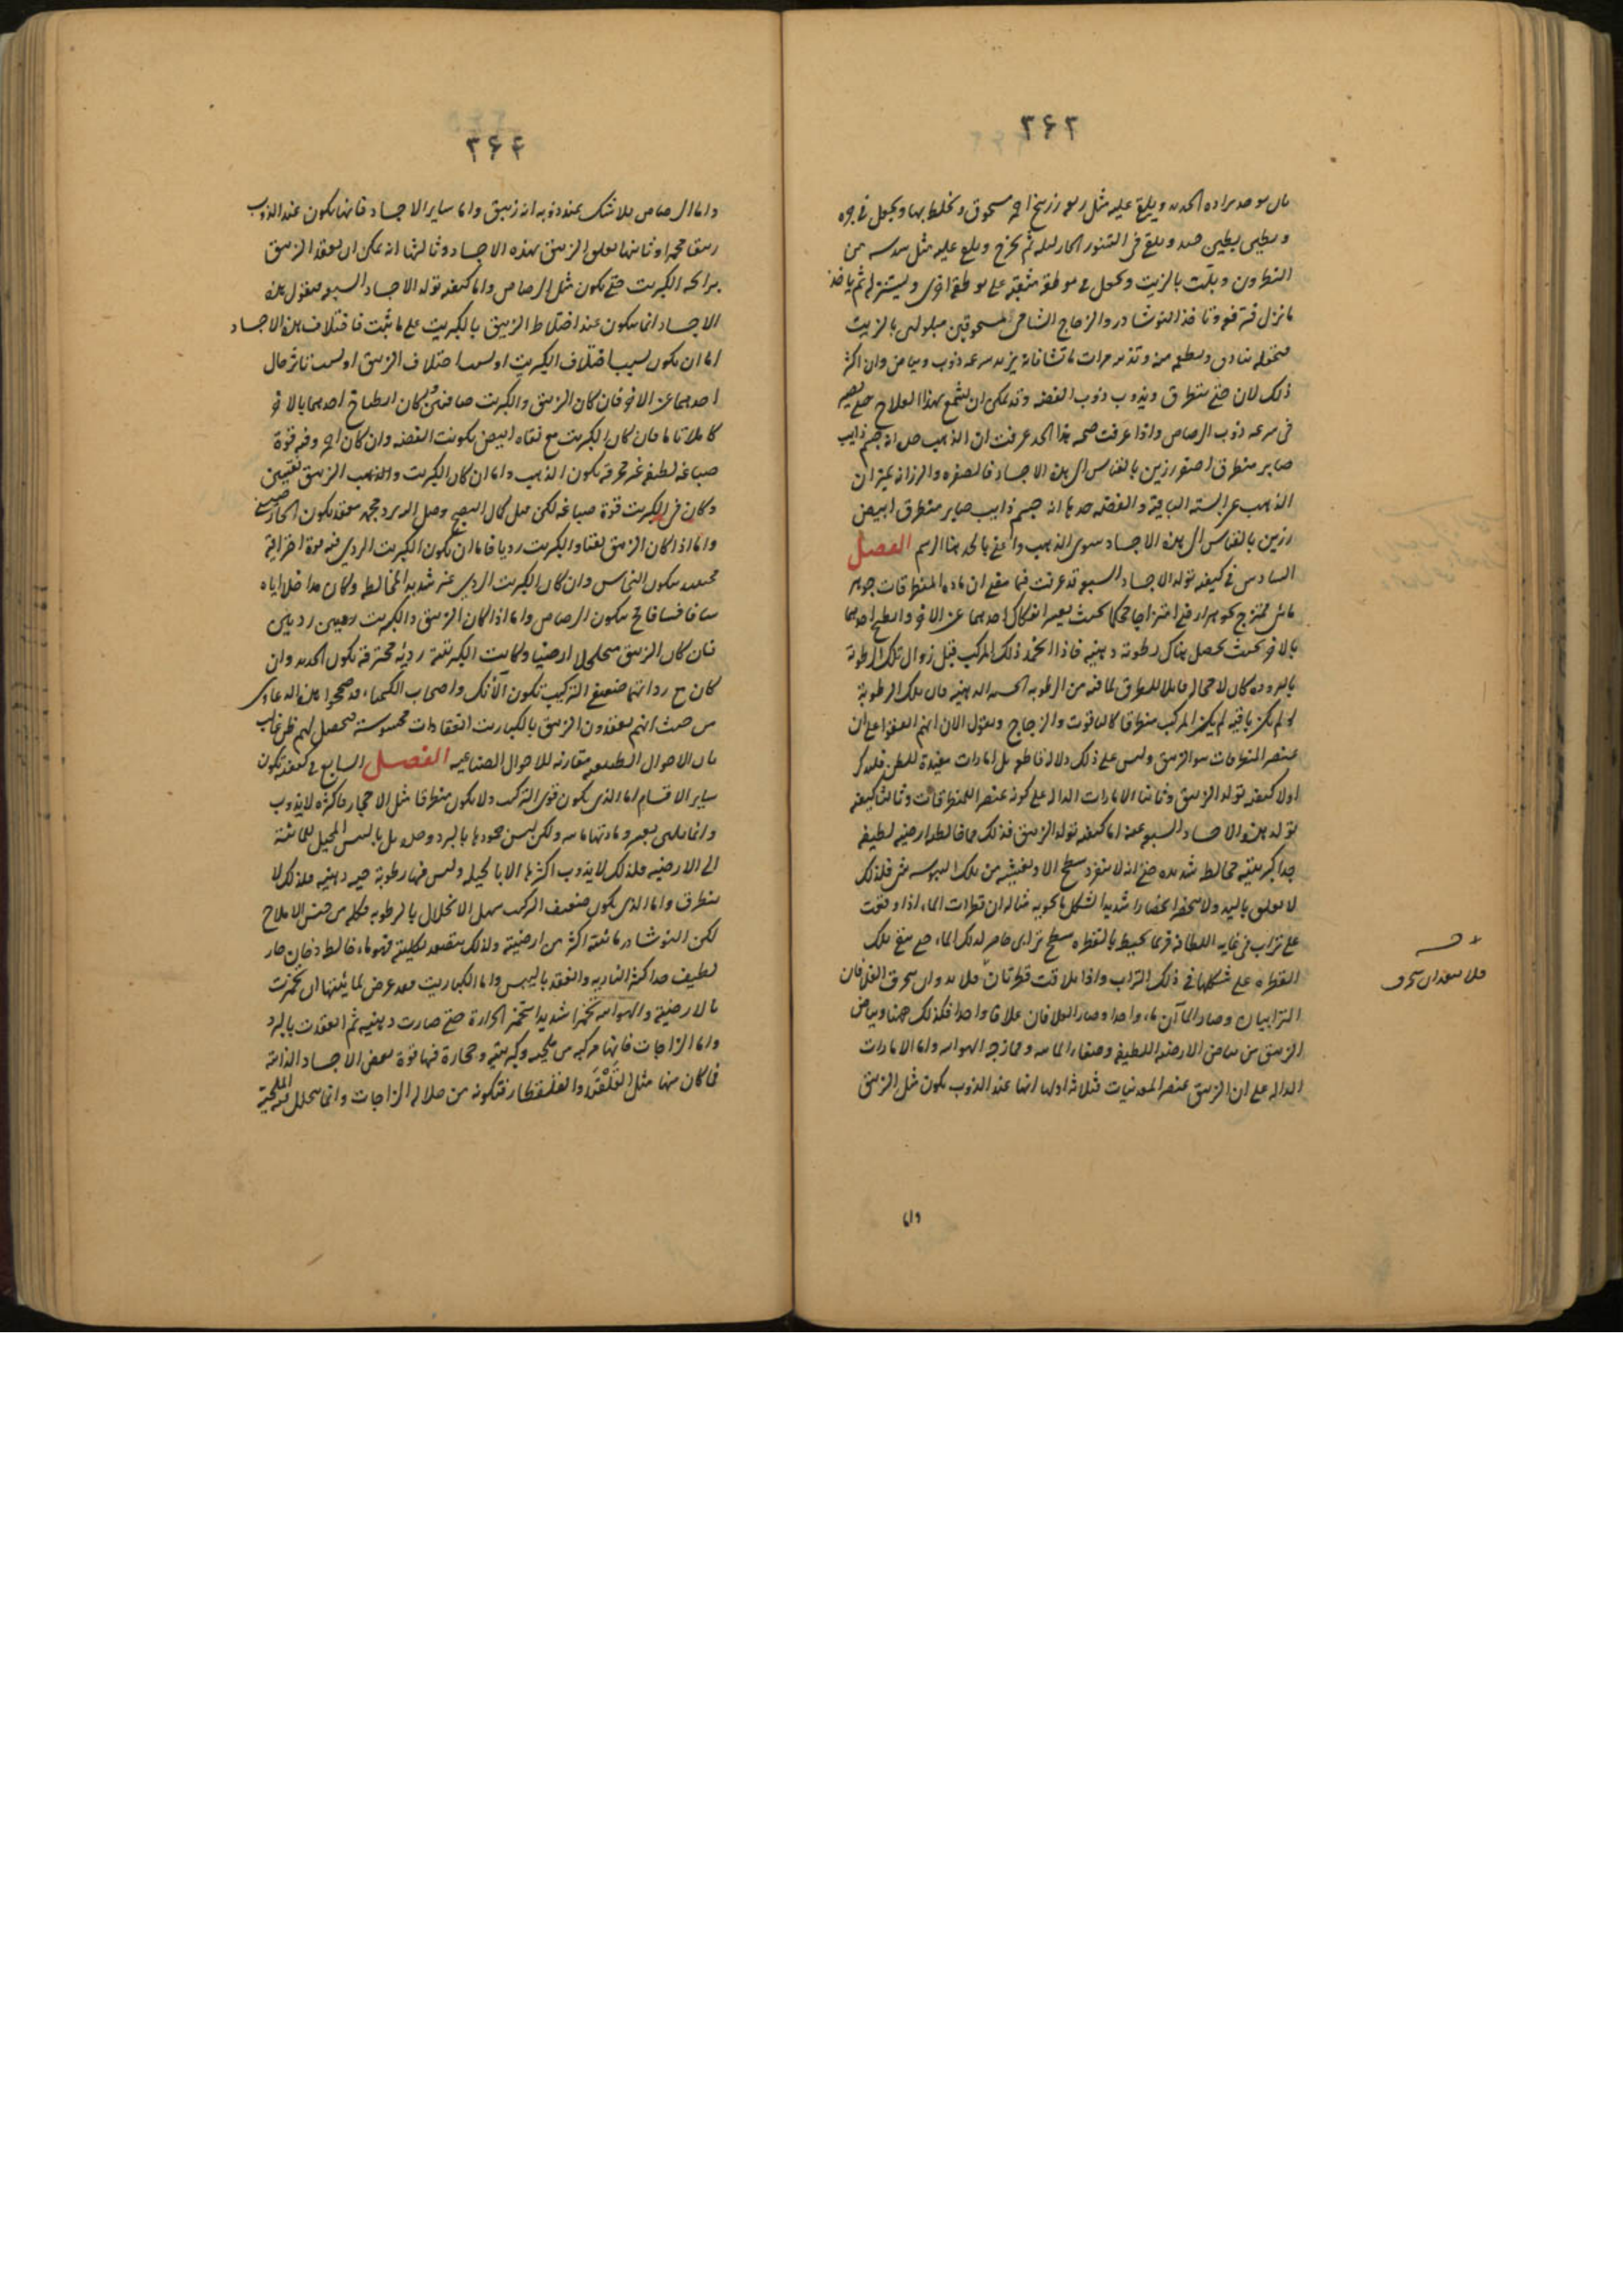 ٢٤٣
بان يوخذ برادة الحديد ويلقى عليه مثل ربعه زرنيخ احمر مسحوق ويخلط بها ويجعل في صره
ويطين بطين ويلقى في التنور الحار ليله ثم يخرج ويلقى عليه مثل سدسه من
النطرون وبلت بالزيت ويجعل في بوطقة مثقبة على بوطقة اخرى ويستنزل ثم ياخذ
ما نزل فيه وتاخذ النوشادر والزجاج الشامي مسحوقين مبلولين بالزيت
فتجعله بنادق ويطعم منه وتذيبه مرات ما تشا فانه يزيد سرعه ذوب وبياض وان اكثر
ذلك لان حتى يتطرق ويذوب ذوب الفضه وقد يمكن ان يشمع بهذا العلاج حتى يصير
في سرعه ذوب الرصاص واذا عرفت صحه هذا الحد عرفت ان الذهب حده انه جسم ذايب
صابر متطرق اصفر رزين بالقياس الى هذه الاجساد فالصفره والرزانه يميزان
الذهب عن الستة الباقية والفضه حدها انه جسم ذايب صابر متطرق ابيض
رزين بالقياس الى هذه الاجساد سوى الذهب واعني بالحد هنا الرسم الفصل
السادس في كيفيه تولد الاجساد السبعه قد عرفت فيما سلف ان ماده المتطرقات جوهر
مائي ممتزج بجوهر ارضي امتزاجا محكما بحيث يعسر انفكاك احدهما عن الاخر وانطبخ احدهما
بالاخر بحيث يحصل هناك رطوبة دهنيه فاذا انجمد ذلك المركب قبل زوال تلك الرطوبة
بالبروده كان لا محاله قابلا للتطرق لما فيه من الرطوبه الدهنيه فان تلك الرطوبة
لو لم تكن باقيه لم يكن المركب متطرقا كالياقوت والزجاج ونقول الان انهم اتفقوا على ان
عنصر المتطرقات هو الزيبق وليس على ذلك دلالة قاطعه بل امارات مفيدة للظن فلنذكر
اولا كيفيه تولد الزيبق وثانيا الامارات الداله على كونه عنصرا للمتطرقات وثالثا كيفيه
تولد هذه الاجساد السبعه عنه اما كيفيه تولد الزيبق فذلك ما خالطه ارضيه لطيفه
جدا كبريتيه مخالطه شديده حتى انه لا ينفرد سطح الا ويغشيه من تلك اليبوسه شي فلذلك
لا يعلق باليد ولا ينحصر انحصارا شديدا بشكل ما يحويه مثاله ان قطرات الماء اذا وقعت
على تراب في غايه اللطافه فربما يحيط بالقطره سطح ترابي حاصر لذلك الماء حتى تبقى تلك
القطره على شكلها في ذلك التراب واذا تلاقت قطرتان فلا بد وان يخرق الغلافان
الترابيان وصار الماآن ماء واحدا وصار الغلافان غلافا واحدا فكذلك ههنا وبياض
الزيبق من بياض الارضيه اللطيفه وصفاء المائيه وممازجه الهوائيه واما الامارات
الداله على ان الزيبق عنصر المعدنيات فثلاثه اولها انها عند الذوب يكون مثل الزيبق
واما
فلا بعد ان يخرق
٢٤٤
واما الرصاص فلا شك عند ذوبه انه زيبق واما ساير الاجساد فانها تكون عند الذوب
زيبقا محمرا وثانيها تعلق الزيبق بهذه الاجساد وثالثها انه يمكن ان يعقد الزيبق
برايحه الكبريت حتى يكون مثل الرصاص واما كيفيه تولد الاجساد السبعه فنقول هذه
الاجساد انما يتكون عند اختلاط الزيبق بالكبريت على ما ثبت فاختلاف هذه الاجساد
اما ان يكون بسبب اختلاف الكبريت او بسبب اختلاف الزيبق او بسبب تاثر حال
احدهما عن الاخر فان كان الزيبق والكبريت صافيين وكان انطباخ احدهما بالاخر
كاملا تاما فان كان الكبريت مع نقاه ابيض تكونت الفضه وان كان احمر وفيه قوة
صباغه لطيفه غير محرقه تكون الذهب واما ان كان الكبريت والزيبق نقيين
وكان في الكبريت قوة صباغه لكن قبل كمال النضج وصل اليه برد مجمد معقد تكون الخارصيني
واما اذا كان الزيبق نقيا والكبريت رديا فاما ان يكون الكبريت الردي فيه قوة احراقية
فيتكون النحاس وان كان الكبريت الردي غير شديد المخالطه وكان مداخلا اياه
سافا فسافا فح يتكون الرصاص واما اذا كان الزيبق والكبريت رديين
فان كان الزيبق متخلخلا ارضيا وكانت الكبريتية رديئه محترقه تكون الحديد وان
كان مع رداتهما ضعيفي التركيب تكون الآنك واصحاب الكيمياء قد صححوا هذه الدعاوى
من حيث انهم يعقدون الزيبق بالكباريت انعقادات محسوسة فيحصل لهم ظن غالب
بان الاحوال الطبيعيه مقارنه للاحوال الصناعيه الفصل السابع في كيفيه تكون
ساير الاقسام اما الذي يكون قوى التركيب ولا يكون متطرقا مثل الاحجار فاكثره لا يذوب
وانما يلين بعسر ومادتها مائيه ولكن ليس جمودها بالبرد وحده بل باليبس المحيل للمائية
الى الارضيه ولذلك لا يذوب اكثرها الا بالحيله وليس فيها رطوبة حيه دهنيه فلذلك لا
يتطرق واما الذي يكون ضعيف التركيب سهل الانحلال بالرطوبه فكله من جنس الاملاح
لكن النوشادر مائيته اكثر من ارضيته ولذلك يتصعد بكليته فهو ماء خالطه دخان حار
لطيف جدا كثير الناريه وانعقد باليبس واما الكباريت فقد عرض لمائيتها ان تخمرت
بالارضيه والهوائيه تخمرا شديدا بتخمير الحرارة حتى صارت دهنيه ثم انعقدت بالبرد
واما الزاجات فانها مركبه من ملحيه وكبريتيه وحجارة فيها قوة بعض الاجساد الذائبة
فما كان منها مثل القلقند والقلقطار فتكونه من حلاله الزاجات وانما يتحلل منه الملحية